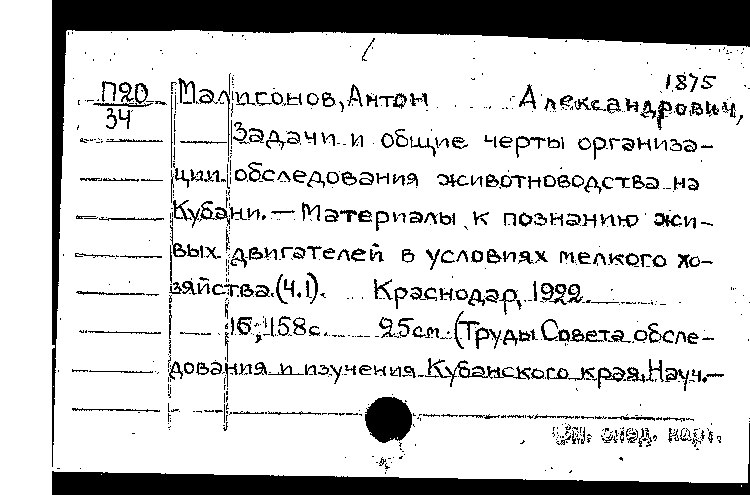 1875
П20 Малигонов, Антон Александрович,
34
Задачи и общие черты организа-
ции обследования животноводства на
Кубани. — Материалы к познанию жи-
вых двигателей в условиях мелкого хо-
зяйства. (Ч.1). Краснодар, 1922.
1б, 158с. 25см. (Труды Совета обсле-
дования и изучения Кубанского края, Науч.—
см. след. карт.